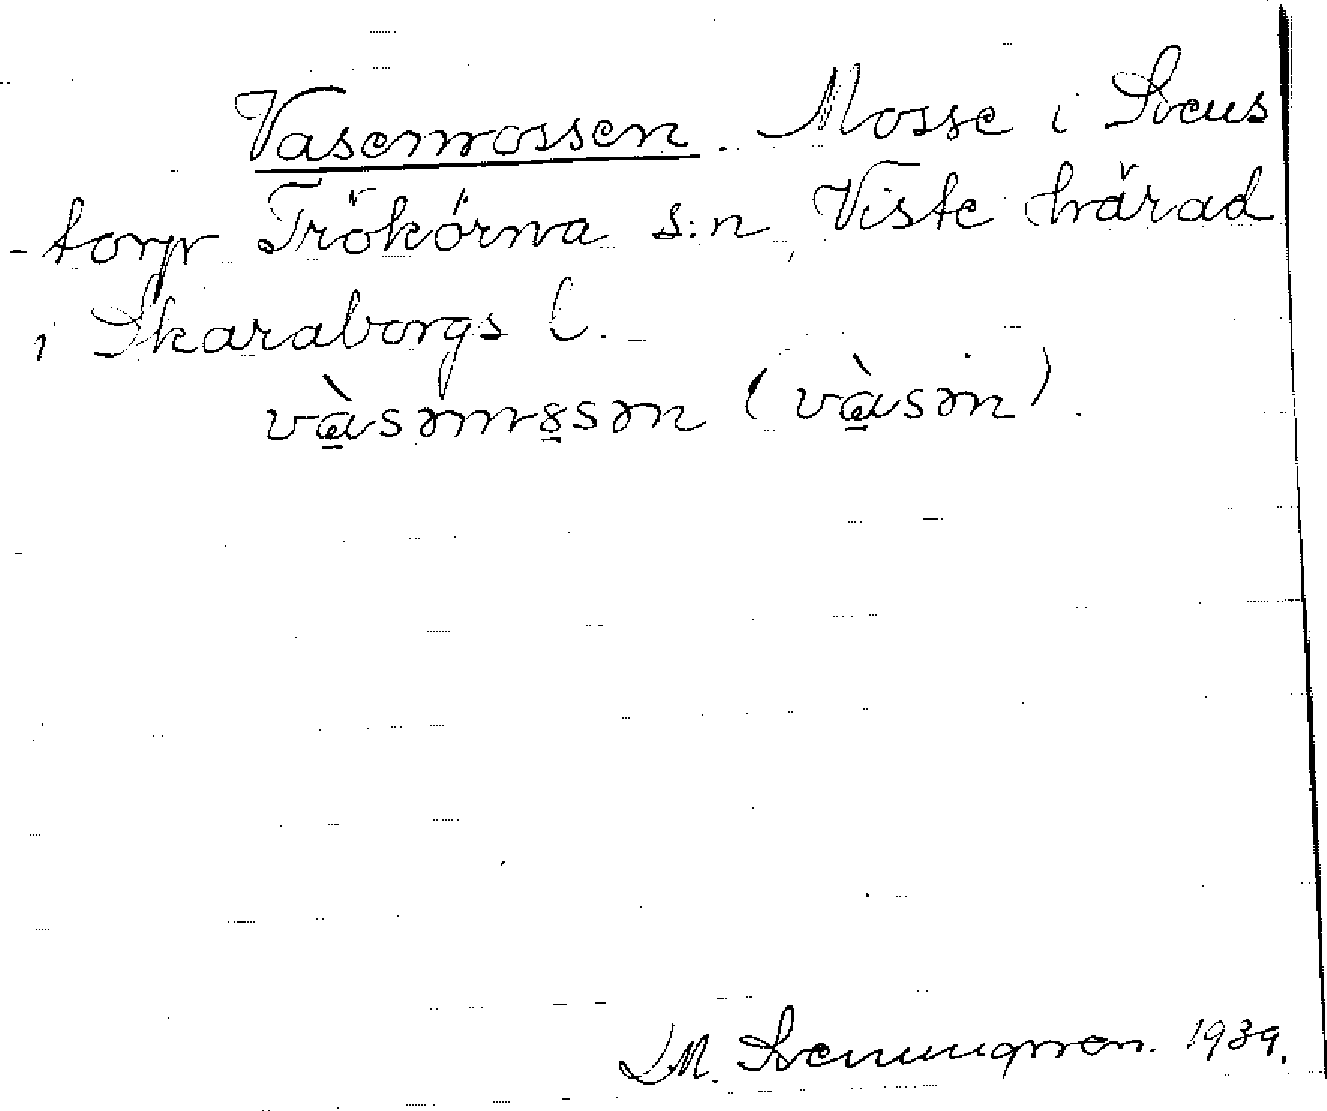 Vasenmossen. Mosse i Svens
-torp Trökörna s:n, Viste härad
i Skaraborgs l.
vàsəmɤsən (vàsən).
M. Svenungsson. 1939.